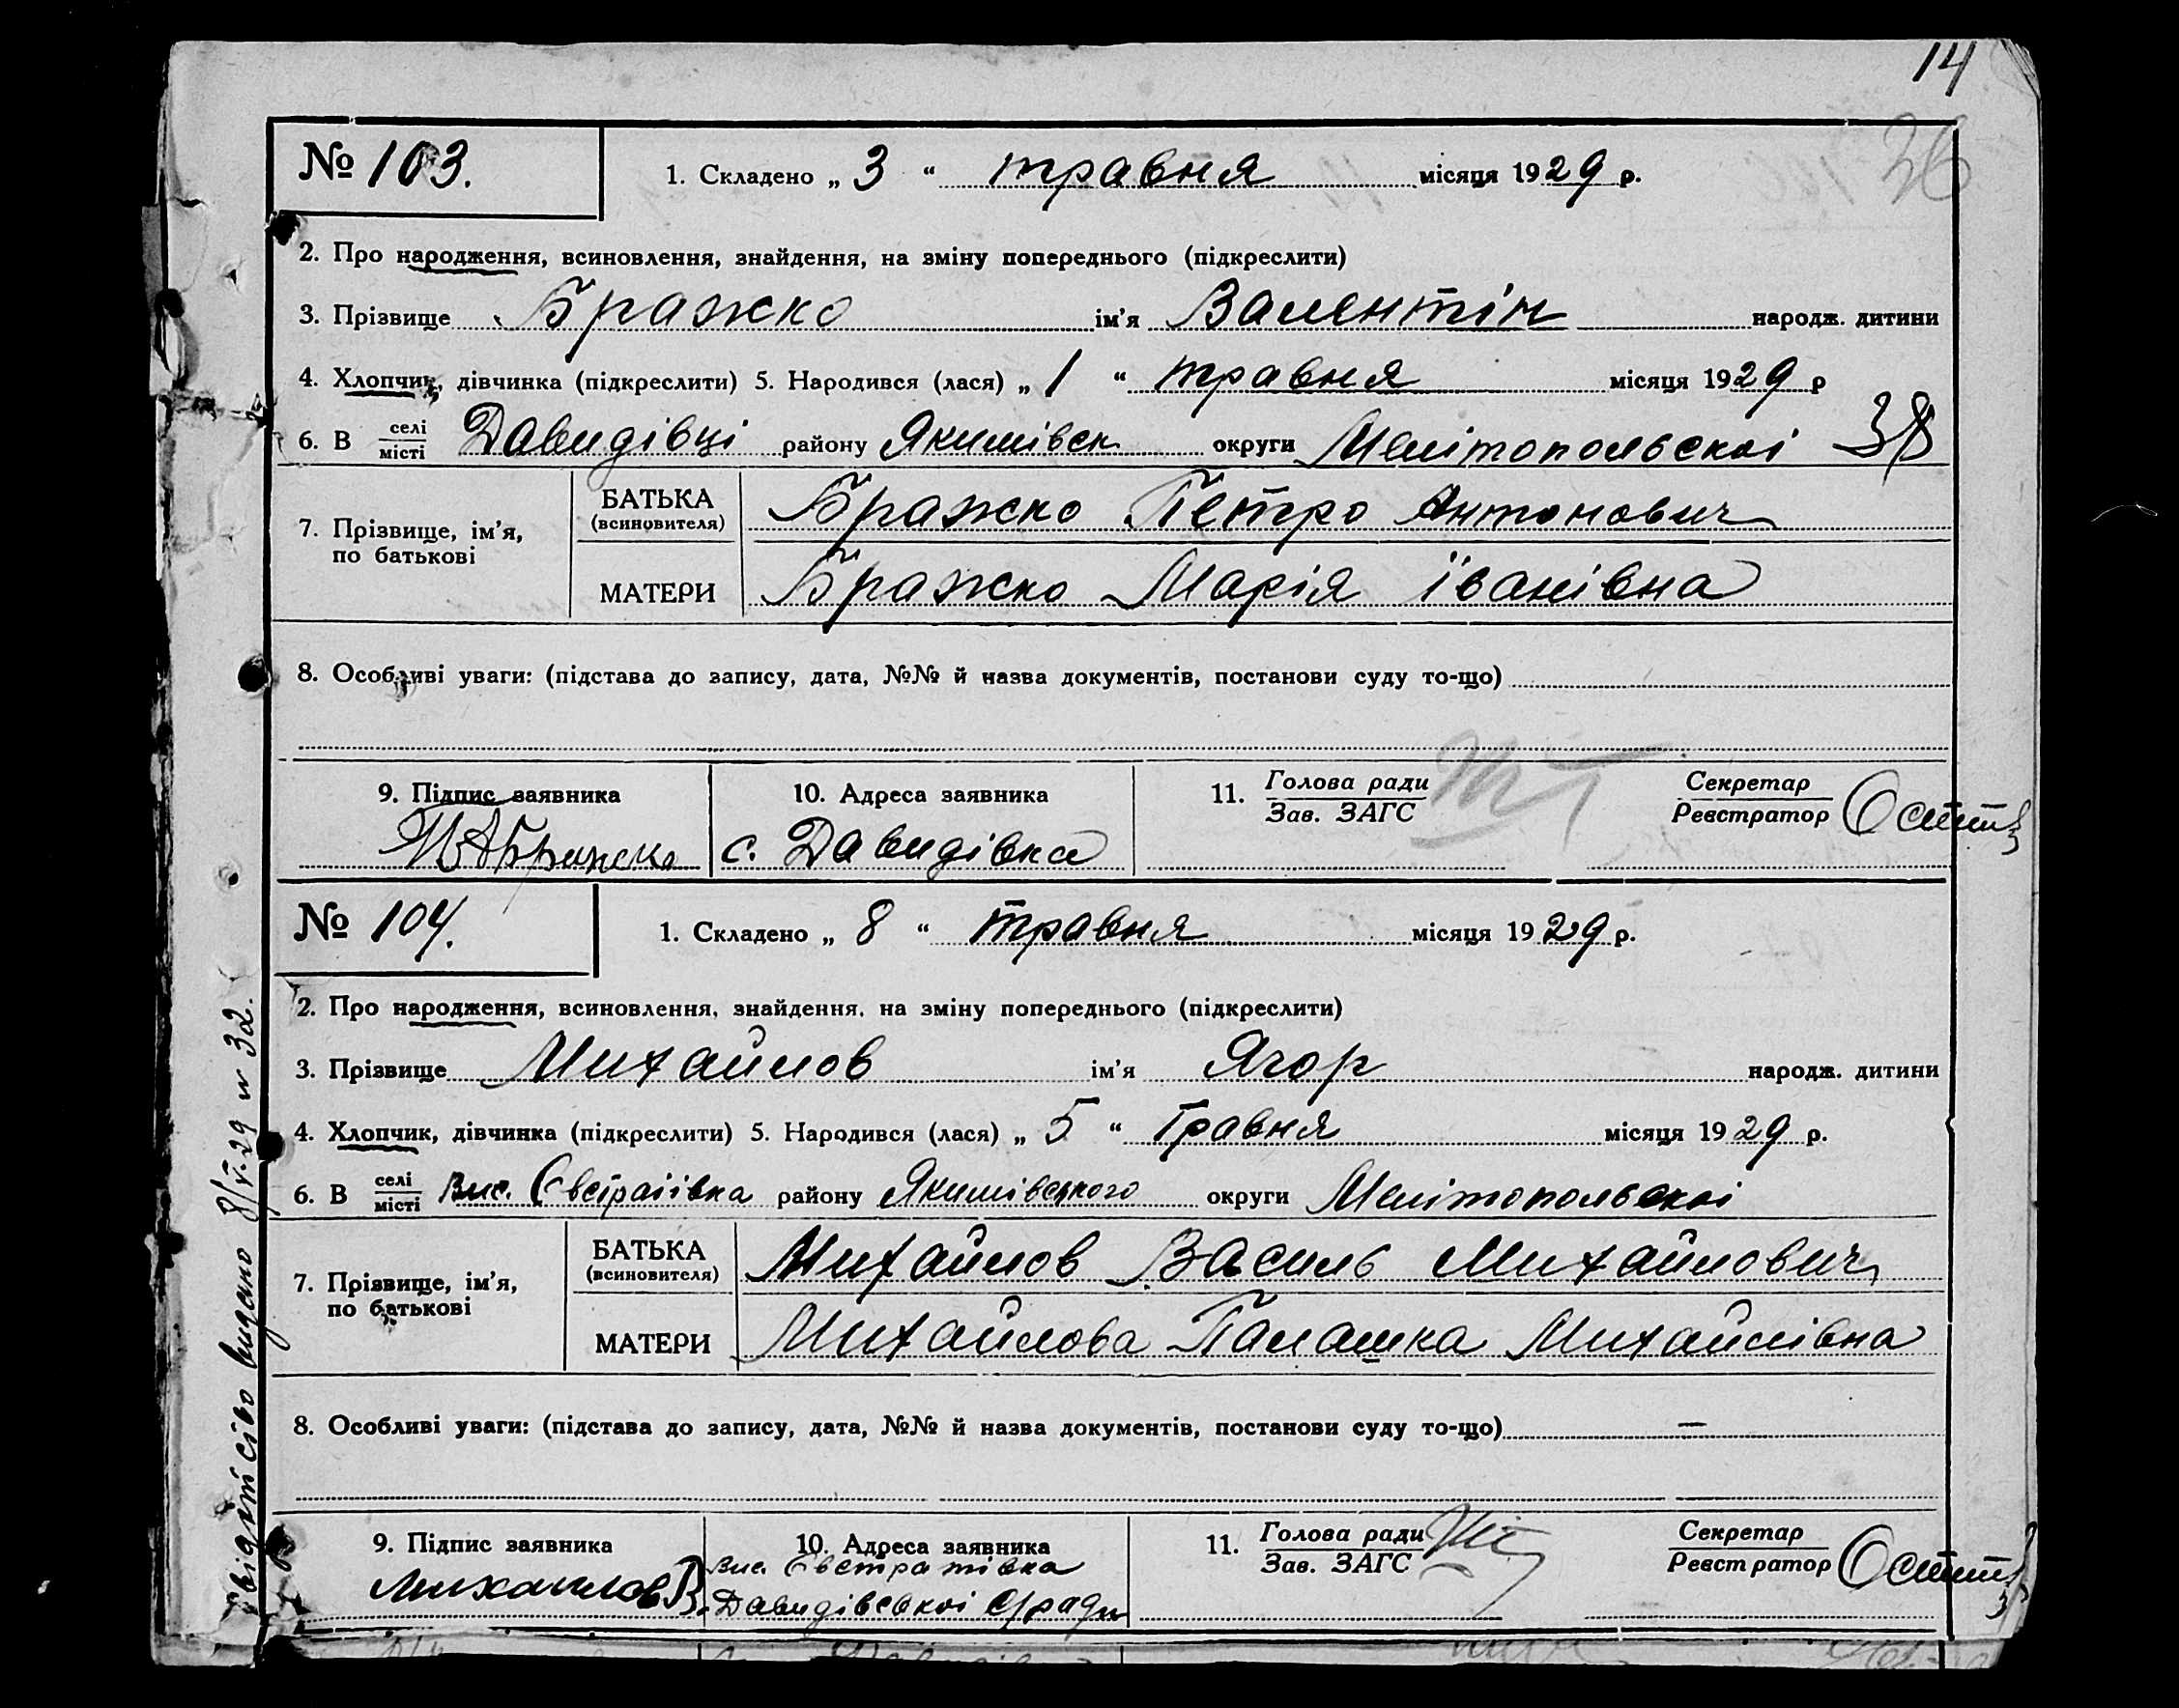 14
36
№ 103.
1. Складено „ 3 “ травня місяця 1929 р.
2. Про народження, всиновлення, знайдення, на зміну попереднього (підкреслити)
3. Прізвище Бражко ім’я Валентін народж. дитини
4. Хлопчик, дівчинка (підкреслити) 5. Народився (лася) „ 1 “ травня місяця 1929 р
6. В селі місті Давидівці району Якимівськ округи Мелітопольскоі
7. Прізвище, ім’я, по батькові
БАТЬКА (всиновителя) Бражко Петро Антонович
МАТЕРИ Бражко Марія Їванівна
8. Особливі уваги: (підстава до запису, дата, №№ й назва документів, постанови суду то-що)
9. Підпис заявника
10. Адреса заявника
11. Голова ради Зав. ЗАГС
Секретар Реєстратор
Бражко
с. Давидівка
№ 104.
1. Складено „ 8 “ травня місяця 1929 р.
2. Про народження, всиновлення, знайдення, на зміну попереднього (підкреслити)
3. Прізвище Михайлов ім’я Ягор народж. дитини
4. Хлопчик, дівчинка (підкреслити) 5. Народився (лася) „ 5 “ Травня місяця 1929 р.
6. В селі місті Вис. Євстратівка району Якимівського округи Мелітопольскоі
7. Прізвище, ім’я, по батькові
БАТЬКА (всиновителя) Михайлов Василь Михайлович
МАТЕРИ Михайлова Палашка Михайлівна
8. Особливі уваги: (підстава до запису, дата, №№ й назва документів, постанови суду то-що) —
9. Підпис заявника
10. Адреса заявника
11. Голова ради Зав. ЗАГС
Секретар Реєстратор
Михайлов В.
Вис. Євстратівка
Давидівськоі с/ради
видано 8/V-29 № 32.